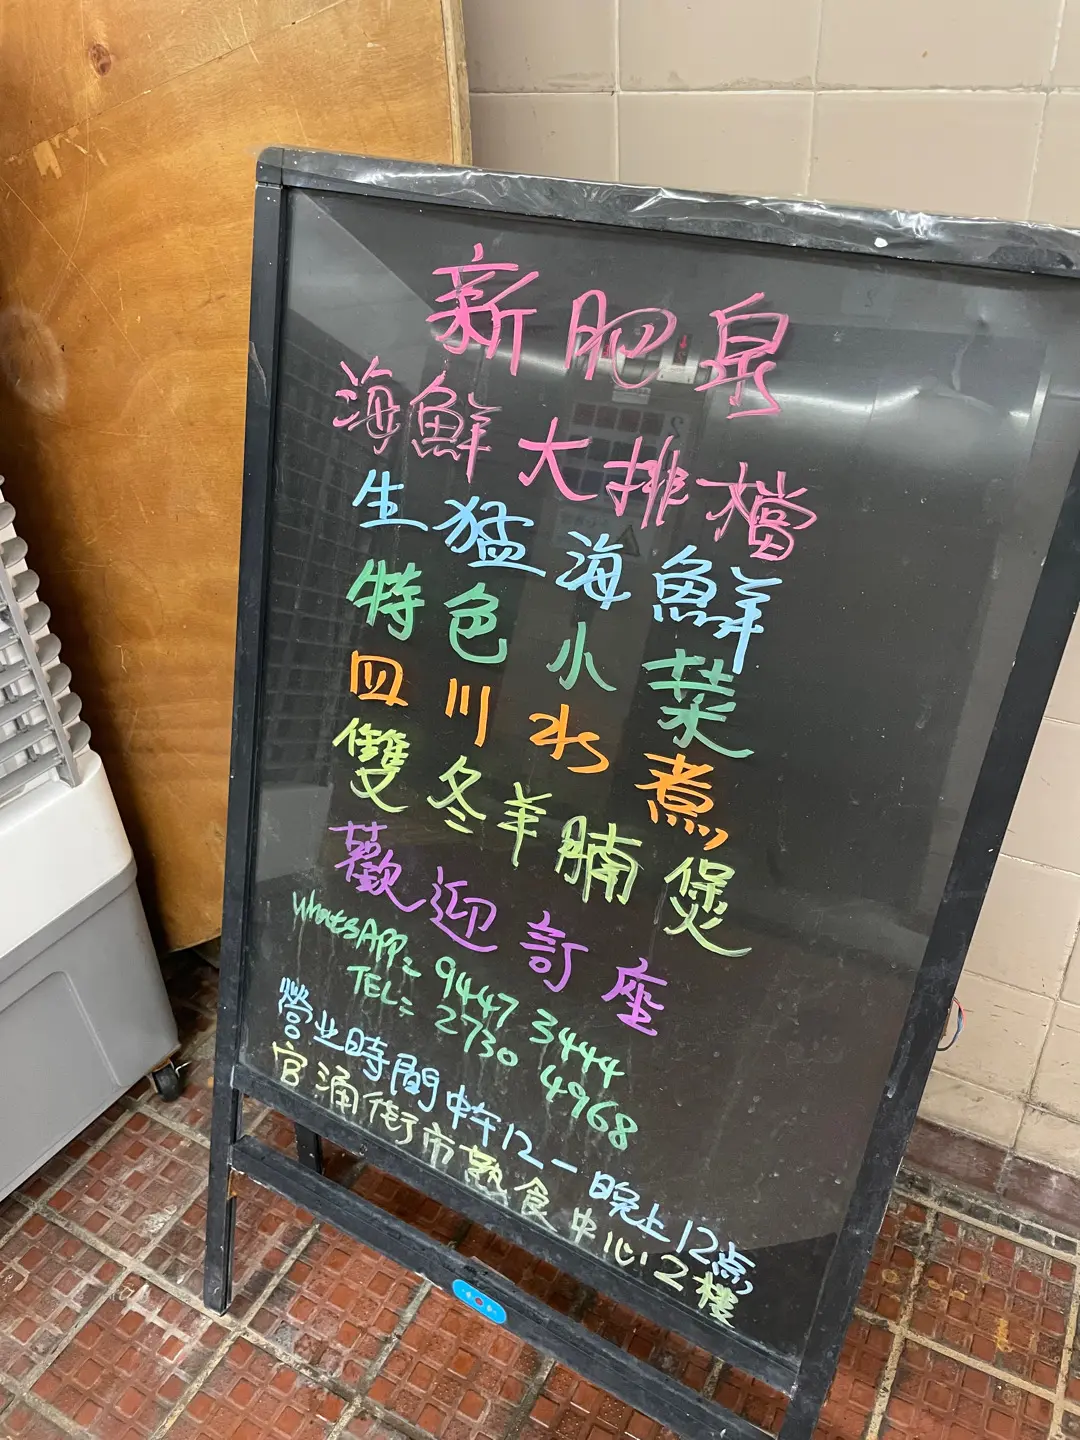 新肥泉
海鮮大排檔
生猛海鮮
特色小菜
四川水煮
雙冬羊腩煲
歡迎訂座
WhatsAPP: 9447 3444
TEL: 2730 4968
營业時間中午12－晚上12点
官涌街市熟食中心2樓